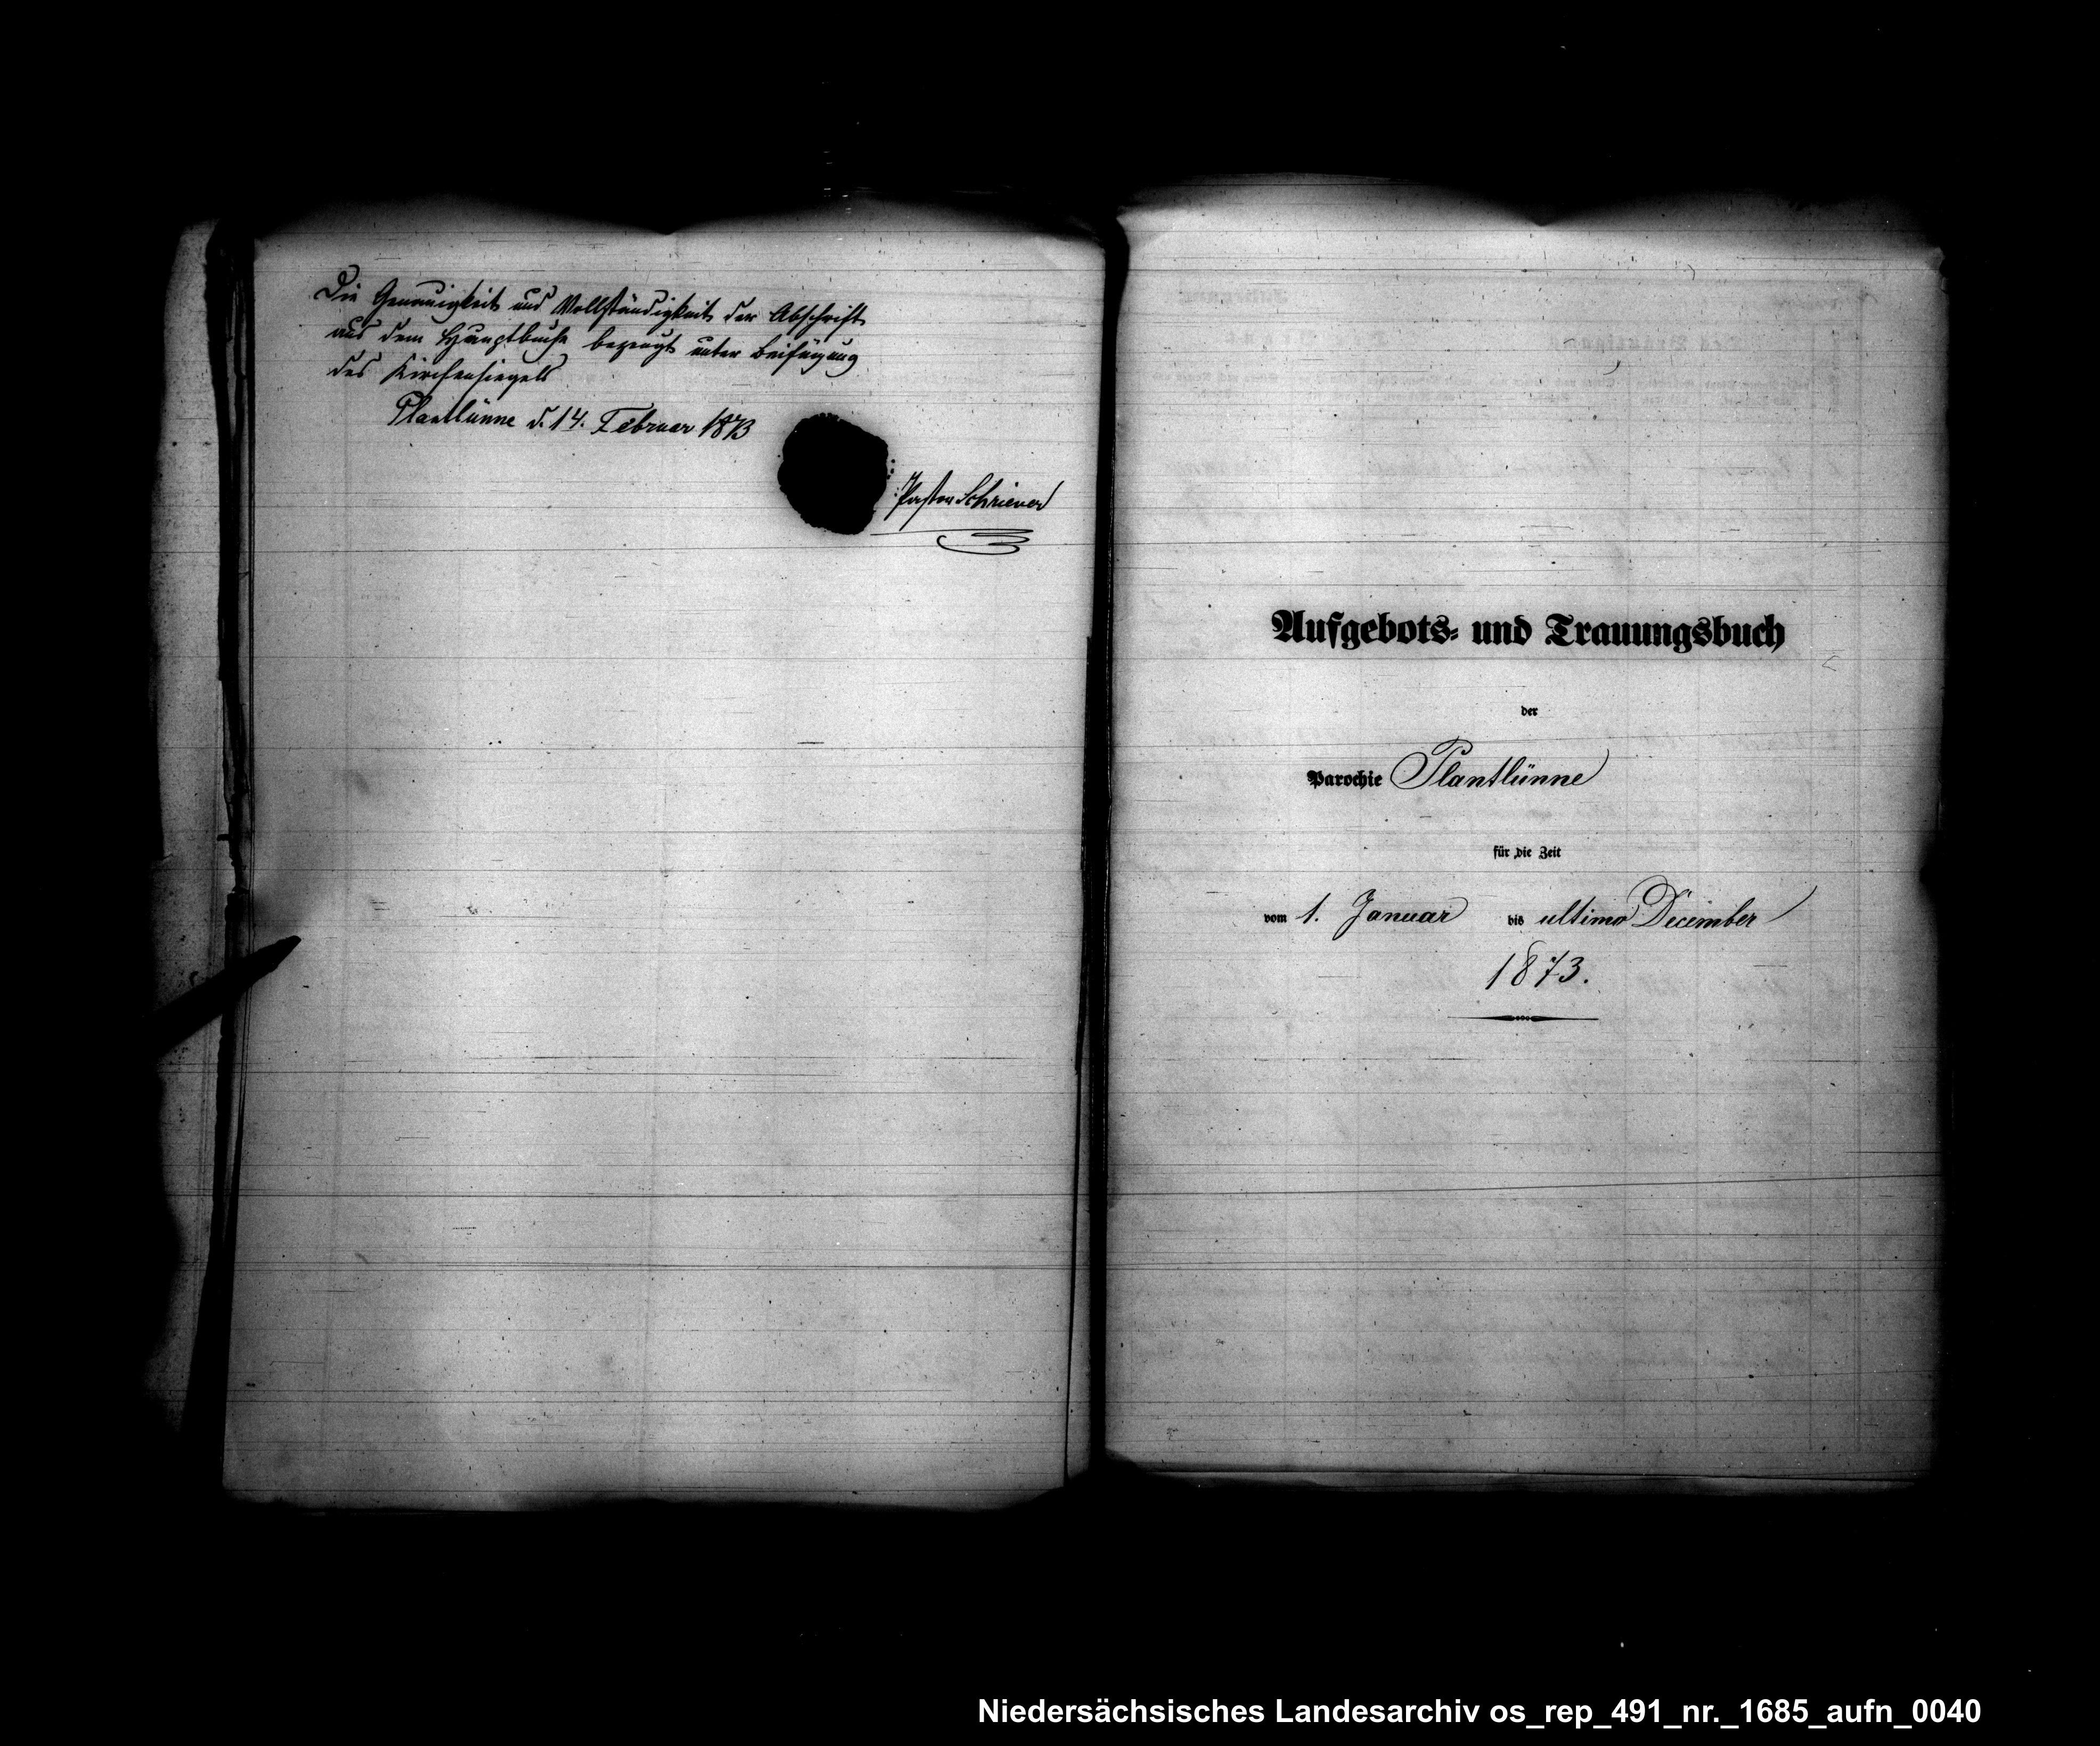 Die Genauigkeit und Vollständigkeit der Abschrift
aus dem Hauptbuche bezeugt unter Beifügung
des Kirchensiegels
Plantlünne d. 14. Februar 1873
Pastor Schriever
Aufgebots- und Trauungsbuch
der
Parochie Plantlünne
für die Zeit
vom 1. Januar bis ultimo December
1873.
Niedersächsisches Landesarchiv os_rep_491_nr._1685_aufn_0040